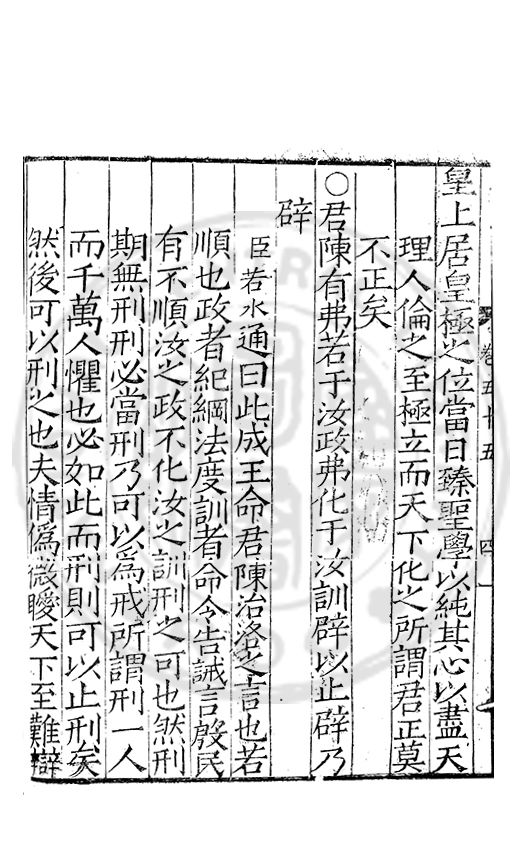 卷五十五 四
皇上居皇極之位當日臻聖學以純其心以盡天
理人倫之至極立而天下化之所謂君正莫
不正矣
○君陳有弗若于汝政弗化于汝訓辟以止辟乃
辟
臣若水通曰此成王命君陳治洛之言也若
順也政者紀綱法度訓者命令告誡言殷民
有不順汝之政不化汝之訓刑之可也然刑
期無刑刑必當刑乃可以為戒所謂刑一人
而千萬人懼也必如此而刑則可以止刑矣
然後可以刑之也夫情僞微曖天下至難辯